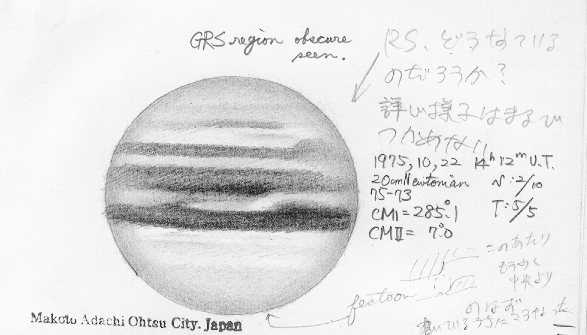 GRS region obscure
seen.
RS、どうなっている
のだろうか?
詳しい様子はまるで
つかめない!!
1975, 10, 22 14h 12m U.T.
20cm Newtonian
75-73
CMI = 285.°1
CMII = 7.°0
T: 5/5
このあたり
中央より
festoon
Makoto Adachi Ohtsu City. Japan